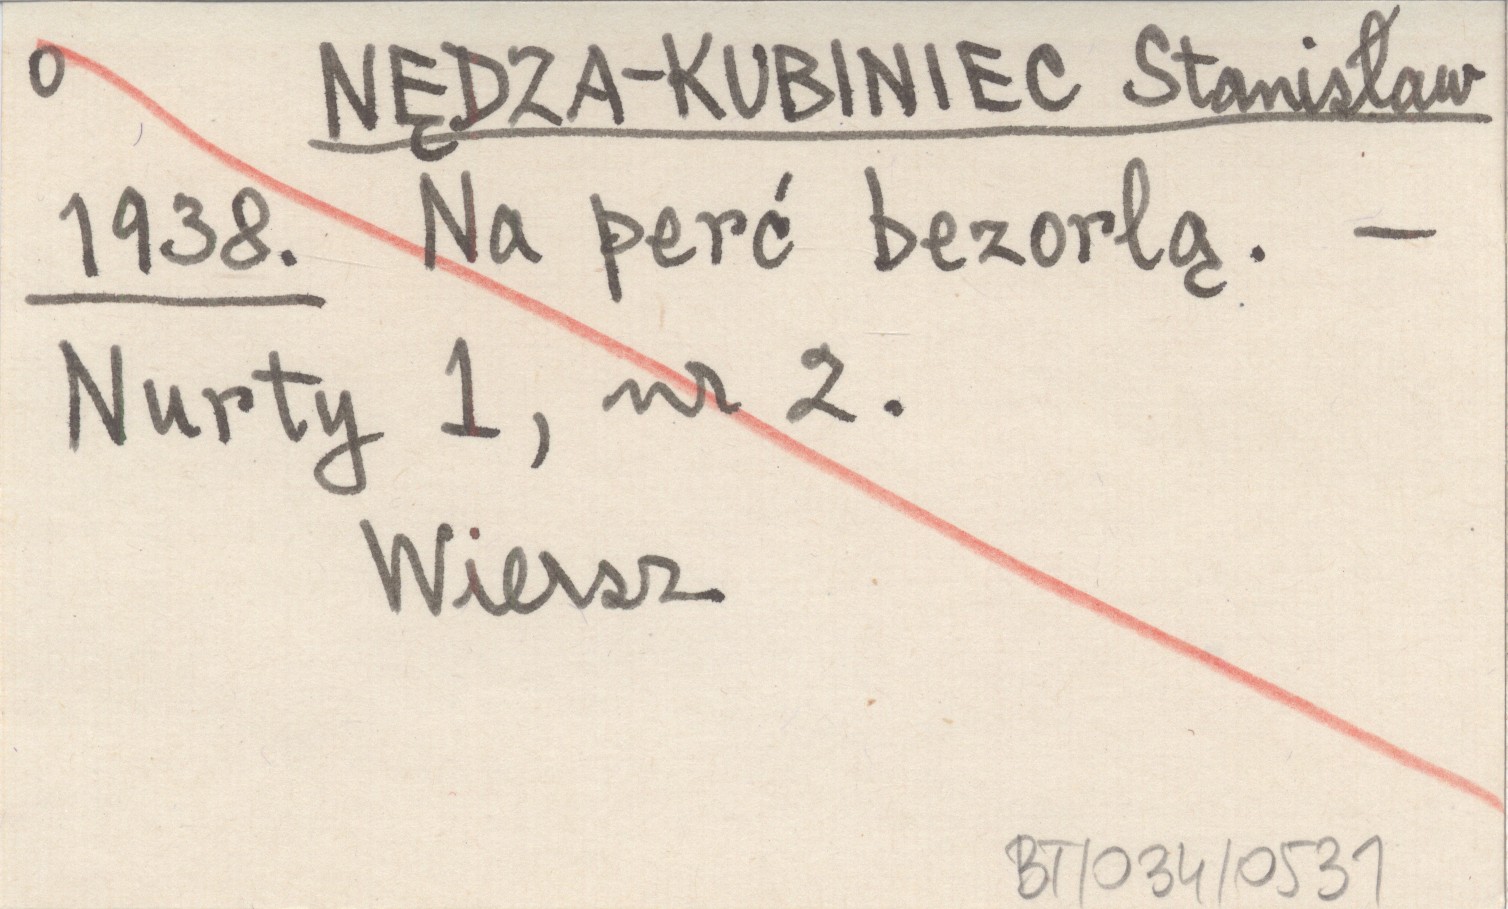 o NĘDZA-KUBINIEC Stanisław
1938. Na perć bezorlą. –
Nurty 1, nr 2.
Wiersz
BT/034/0531